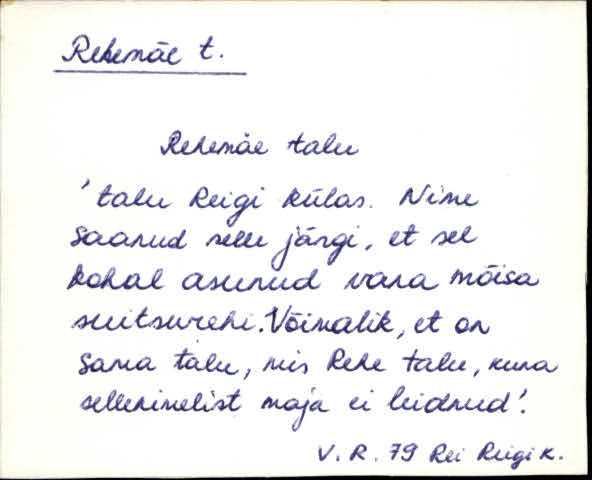 Rehemäe t.
Rehemäe talu
'talu Reigi külas. Nime
saanud selle järgi, et sel
kohal asunud vana mõisa
suitsurehi. Võimalik, et on
sama talu, mis Rehe talu, kuna
sellenimelist maja ei leidnud'.
V. R. 79 Rei Reigi k.